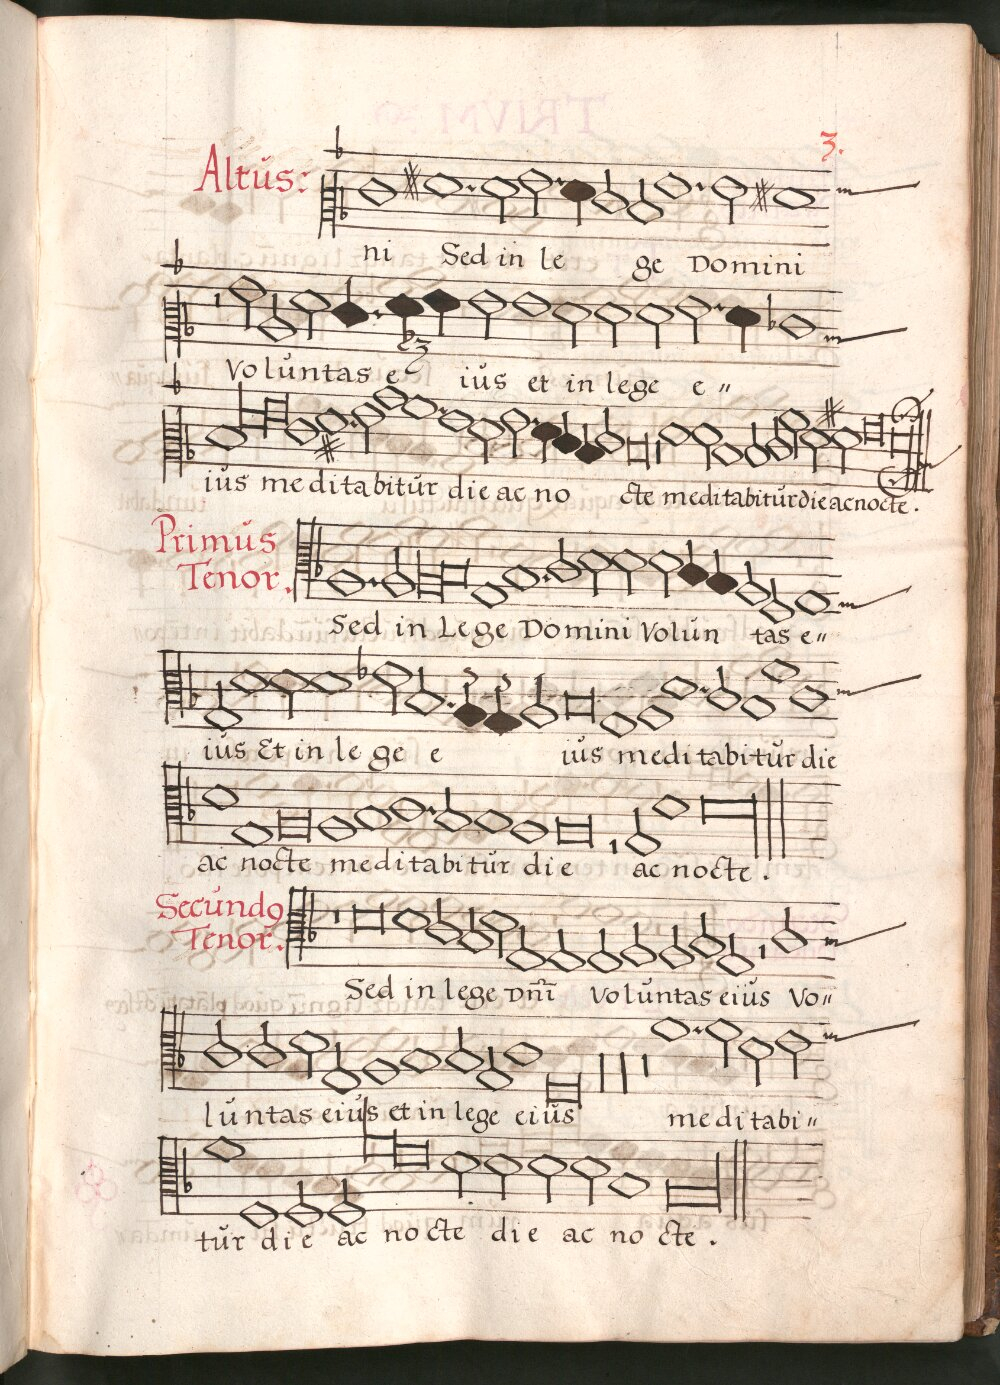 3.
Altus:
ni Sed in le ge Domini
Voluntas e ius et in lege e "
ius meditabitur die ac no cte meditabitur die ac nocte.
Primus
Tenor.
Sed in Lege Domini Volun tas e "
ius Et in le ge e ius meditabitur die
ac nocte meditabitur die ac nocte.
Secundꝯ
Tenor.
Sed in lege Dn̄ī Voluntas eius Vo "
luntas eius et in lege eius meditabi "
tur die ac nocte die ac no cte.